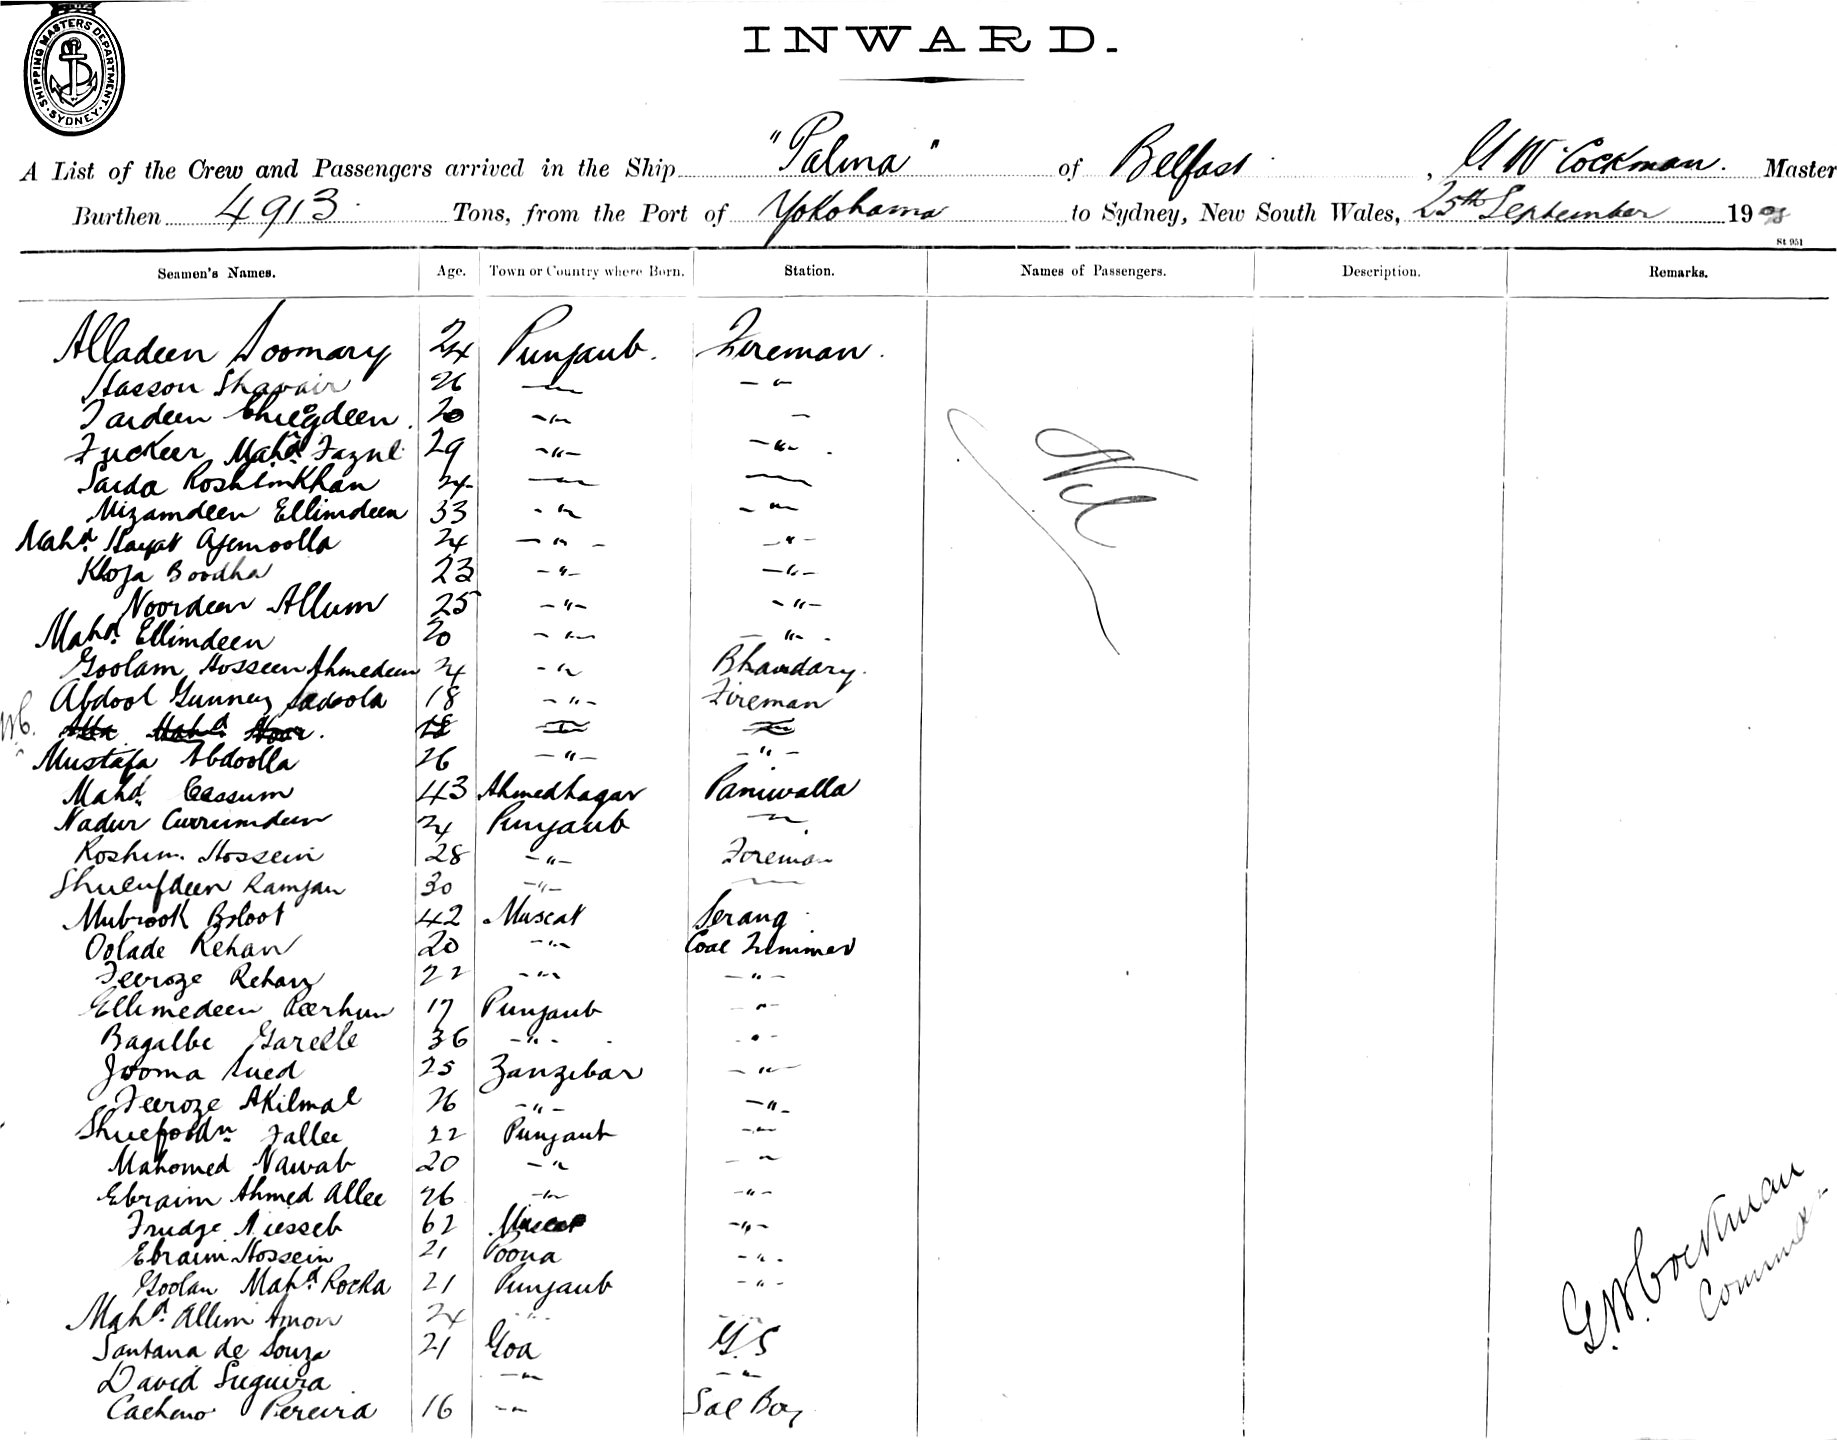 SHIPPING MASTERS DEPARTMENT. SYDNEY.
INWARD.
A List of the Crew and Passengers arrived in the Ship "Palma" of Belfast, G W Cockman. Master
Burthen 4913 Tons, from the Port of Yokohama to Sydney, New South Wales, 25th September 190
St 951
Seamen's Names. Age. Town or Country where Born. Station. Names of Passengers. Description. Remarks.
Alladeen Soomary 24 Punjaub. Fireman.
Hasson 26 —"— —"—
20 —"— —
Fuckeer Mahd. Fazul 29 —"— —"—
Saida Roshimkhan 24 —"— —
Nizamdeen Ellimdeen 33 —"— —"—
Mahd. Hayat Ajemoolla 24 —"— —"—
Khoja Boodha 23 —"— —"—
Noordeen Allum 25 —"— —"—
Mahd. Ellimdeen 20 —"— —"—
Goolam Hosseen Ahmedeen 24 —"— Bhandary.
Abdool Gunney Sadoola 18 —"— Fireman
Atta Mahd. Noor. 18
Mustafa Abdoolla 26 —"— —"—
Mahd. Cassum 43 Ahmednagar Paniwalla
Nadur Currimdeen 24 Punjaub —"—
Roshim. Hossein 28 —"— Fireman
Shurufdeen Ramjan 30 —"— —
Mubrook Beloot 42 Muscat Serang
Oolade Rehan 20 —"— Coal Trimmer
Feeroze Rehan 22 —"— —"—
Ellimedeen 17 Punjaub —"—
36 —"— —"—
Jooma 25 Zanzibar —"—
Feeroze Akilmal 26 —"— —"—
Fallee 22 Punjaub —"—
Mahomed Nawab 20 —"— —"—
Ebraim Ahmed Allee 26 —"— —"—
62 Muscat —"—
Ebraim Hossein 21 Poona —"—
Goolam Mahd. Rocka 21 Punjaub —"—
Mahd. Allim Amon 24 —"— —"—
Santana de Souza 21 Goa G.S
David —"— —"—
Pereira 16 —"— Boy
Nil
G.W. Cockman